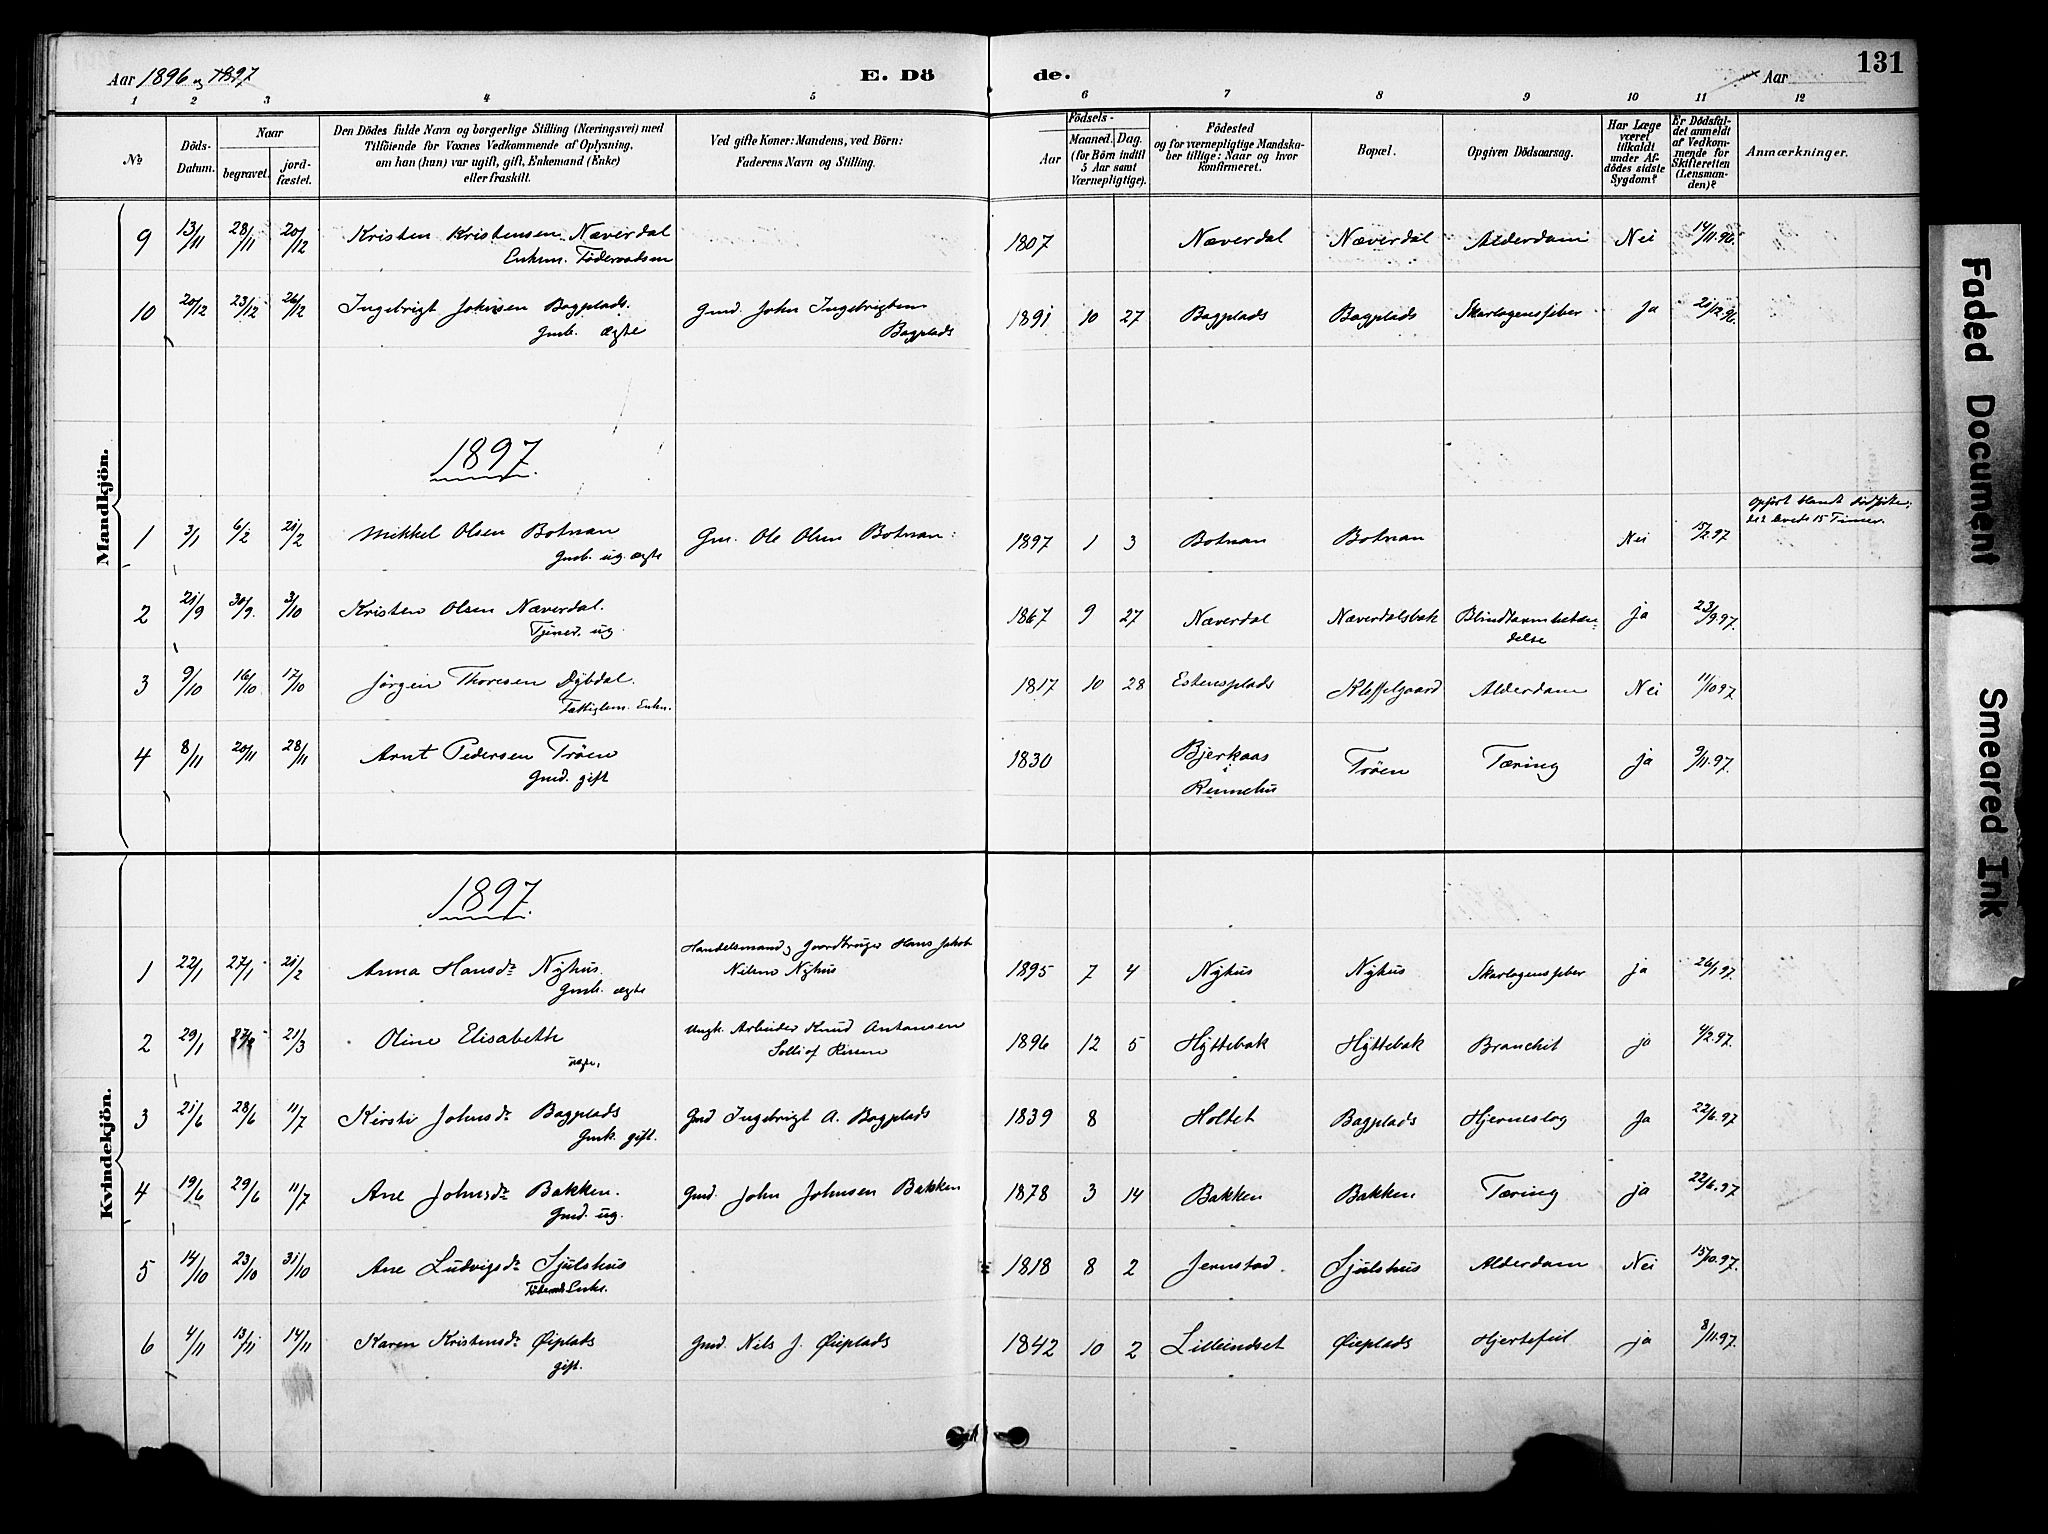 Aar 1896 og 1897
E. Dö
de.
Aar
131
1 2 3 4 5 6 7 8 9 10 11 12
No
Döds-
Datum.
Naar
begravet.
jord-
fæstet.
Den Dödes fulde Navn og borgerlige Stilling (Næringsvei) med
Tilföiende for Voxnes Vedkommende af Oplysning,
om han (hun) var ugift, gift, Enkemand (Enke)
eller fraskilt.
Ved gifte Koner: Mandens, ved Börn:
Faderens Navn og Stilling.
Födsels-
Aar
Maaned.
Dag.
(for Börn indtil
5 Aar samt
Værnepligtige).
Födested
og for værnepligtige Mandska-
ber tillige: Naar og hvor
konfirmeret.
Bopæl.
Opgiven Dödsaarsag.
Har Læge
været
tilkaldt
under Af-
dödes sidste
Sygdom?
Er Dödsfal-
det anmeldt
af Vedkom-
mende for
Skifteretten
(Lensman-
den)?
Anmærkninger.
Mandkjön.
9 13/11 28/11 20/12 Kristen Kristensen Næverdal 1807 Næverdal Næverdal Alderdom Nei 14/11.96.
Enkem. Föderaadsm
10 20/12 23/12 26/12 Ingebrigt Johnsen Bagplads. Gmd. John Ingebrigtsen 1891 10 27 Bagplads Bagplads Skarlagensfeber Ja 21/12.96.
Gmb. ægte Bagplads
1897.
Opfört blandt dödföte;
1 3/1 6/2 21/2 Mikkel Olsen Botnan Gm. Ole Olsen Botnan: 1897 1 3 Botnan Botnan Nei 15/2.97 levede 15 Timer.
Gmb. ug. ægte
2 21/9 30/9. 3/10 Kristen Olsen Næverdal. 1867 9 27 Næverdal Næverdalsbak Blindtarmbetæn- ja 23/9.97.
Tjened. ug. delse
3 9/10 16/10 17/10 Jörgen Thoresen Dybdal. 1817 10 28 Estensplads Kleffelgaard Alderdom Nei 11/10.97
Fattiglem. Enkm.
4 8/11 20/11 28/11 Arnt Pedersen Tröen 1830 Bjerkaas Tröen Tæring ja 9/11.97.
Gmd. gift i
Rennebu
Kvindekjön.
1897.
Handelsmand og Gaardbruger Hans Jakob
1 22/1 27/1 21/2 Anna Hansdr Nyhus. Nilsen Nyhus 1895 7 4 Nyhus Nyhus Skarlagensfeber ja 26/1.97.
Gmb. ægte
2 29/1 21/3 Oline Elisabeth Ungk. Arbeider Knud Antonsen 1896 12 5 Hyttebak Hyttebak Bronchit ja 4/2.97.
uægte. Solli af Rissen
3 21/6 28/6 11/7 Kirsti Johnsdr Bagplads Gmd Ingebrigt A. Bagplads 1839 8 Holtet Bagplads Hjerneslag Ja 22/6.97
Gmk. gift.
4 19/6 29/6 11/7 Ane Johnsdr Bakken. Gmd. John Johnsen Bakken 1878 3 14 Bakken Bakken Tæring ja 22/6.97
Gmd. ug.
5 14/10 23/10 31/10 Ane Ludvigsdr Sjulshus 1818 8 2 Jernstad. Sjulshus Alderdom Nei 15/10.97.
Enke.
6 4/11 13/11 14/11 Karen Kristensdr Øiplads Gmd. Nils J. Øieplads 1842 10 2 Lilleindset Øieplads Hjertefeil ja 8/11.97.
gift.
Faded Document
Smeared Ink